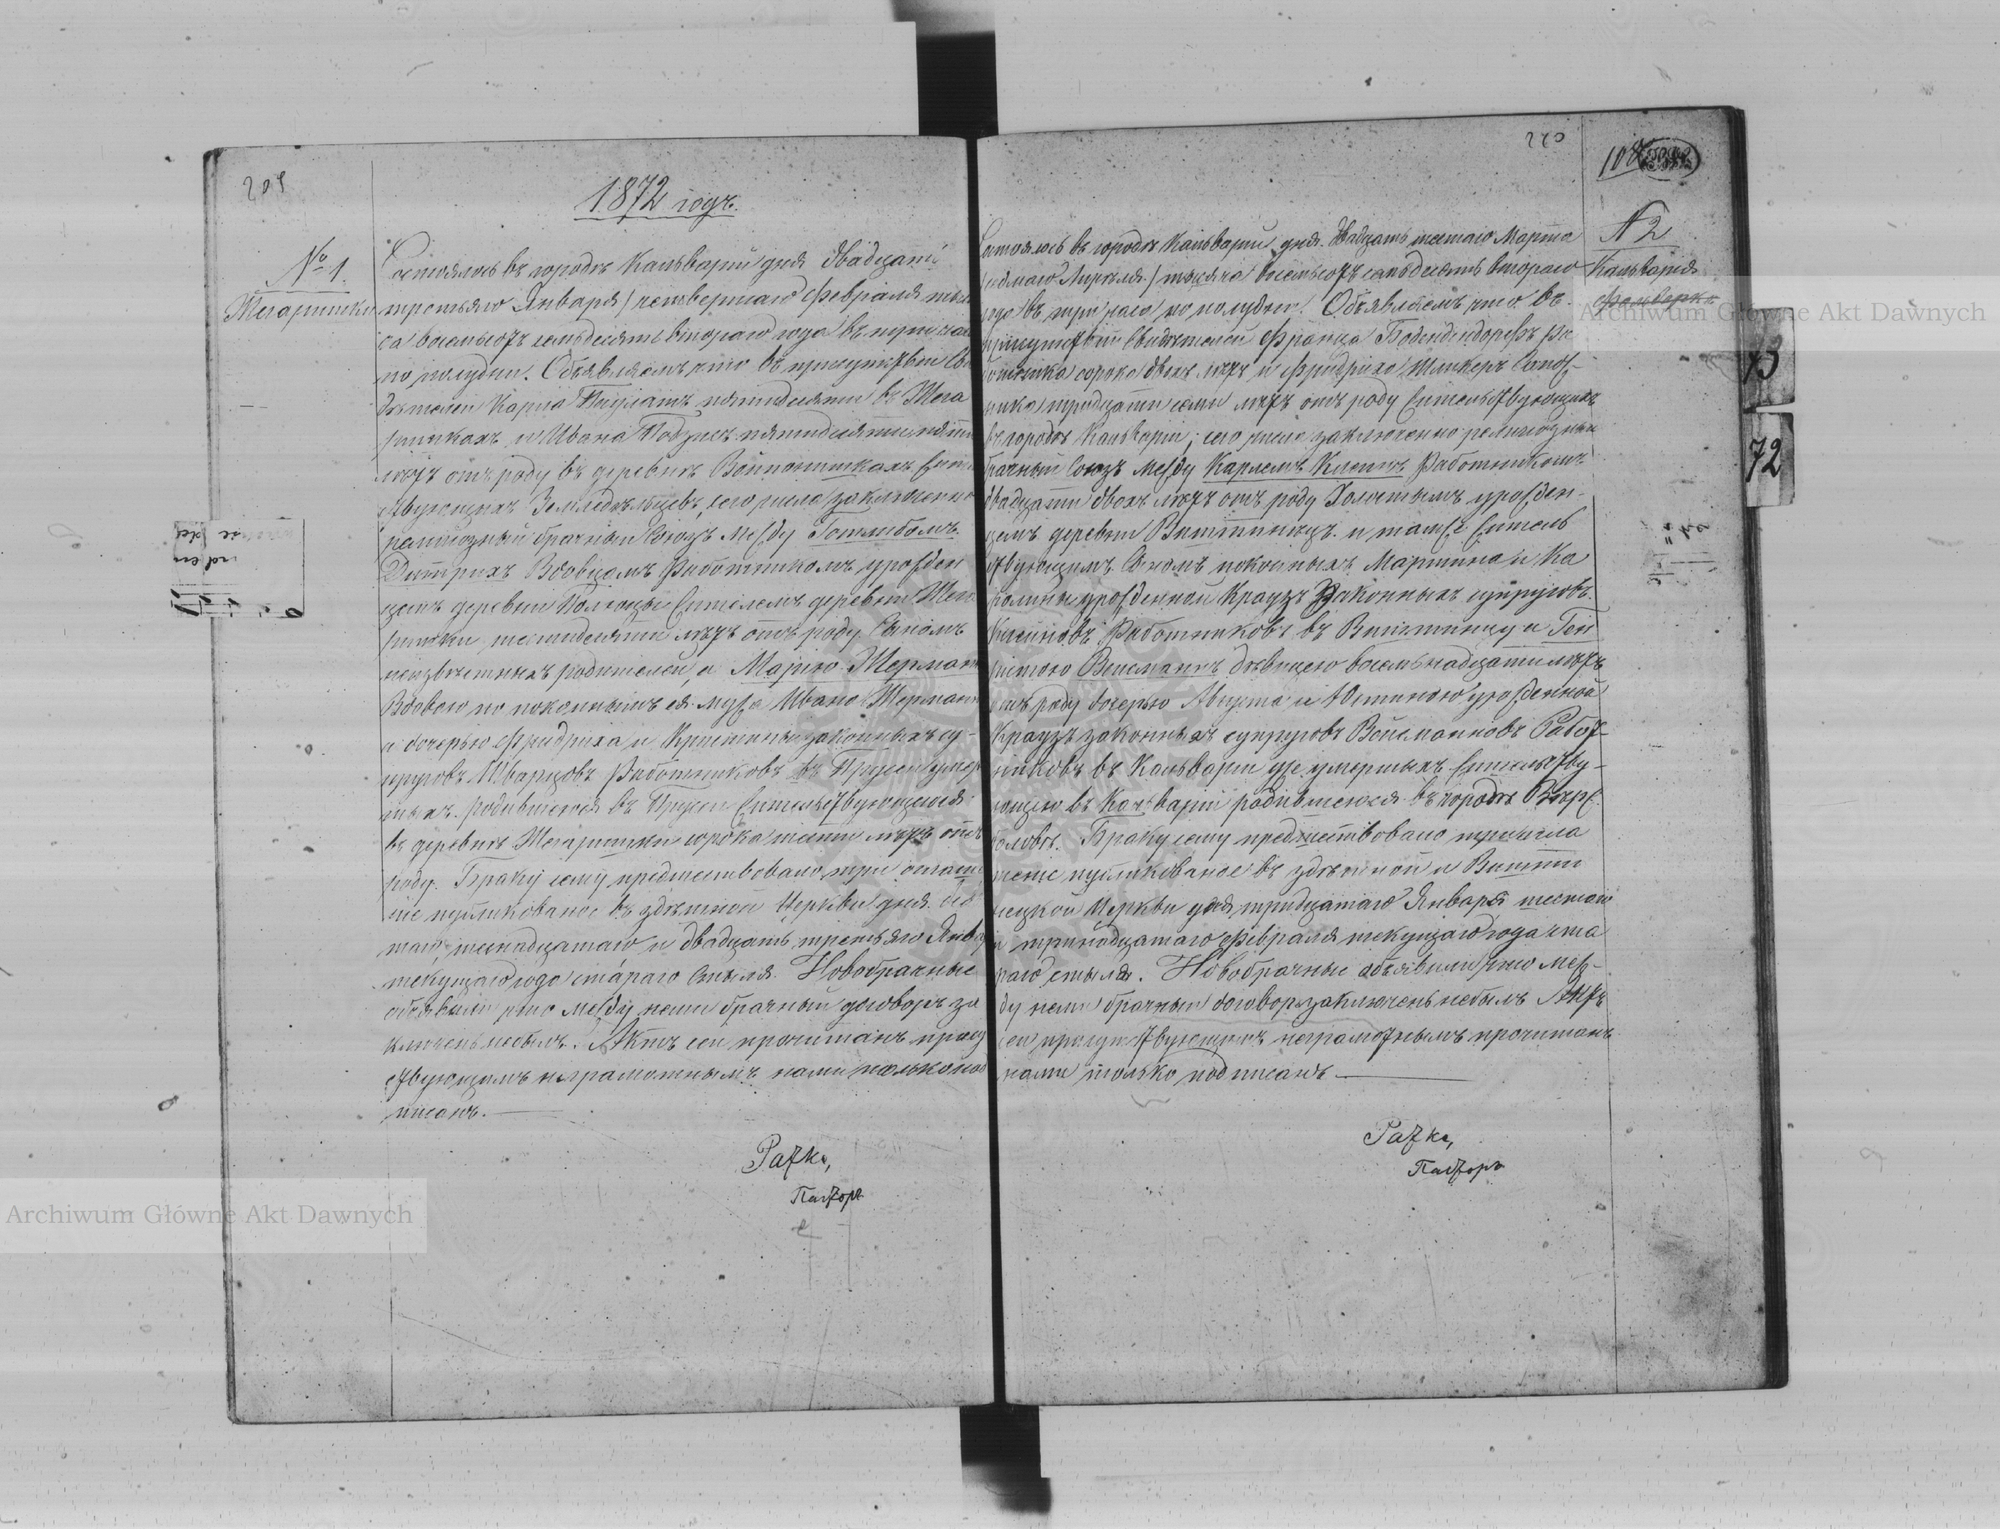 209
1872 годъ.
№ 1.
Состоялось въ городѣ Кальваріи дня двадцать
третьяго Января / четвертаго Февраля тыся
ча восемьсотъ семьдесятъ втораго года въ три часа
по полудни. Объявляемъ что въ присутствіи Сви
дѣтелей Карла пятидесяти въ Мега
ришкахъ и Ивана пятидесяти пяти
лѣтъ отъ роду въ деревнѣ Войпонишкахъ жител
ствующихъ Земледѣльцевъ, сего числа заключенно
религіозный брачный союзъ между Готлибомъ
Дитрихъ Вдовцомъ Работникомъ урожден
цемъ деревни жителемъ деревни Мега
ришки шестидесяти лѣтъ отъ роду Сыномъ
неизвѣстныхъ родителей, а Маріею Шерманъ
Вдовою по покойнымъ ея мужа Ивана Шерманъ
а дочерью Фридриха и Кристины законныхъ су-
пруговъ Шварцовъ Работниковъ въ Пруссіи умер
шихъ. родившеюся въ Пруссіи жительствующеюся
въ деревнѣ Мегаришки сорока шести лѣтъ отъ
роду. Браку сему предшествовало три оглаше
ніе публикованое въ здѣшной Церкви дня де
таго, шеснадцатаго и двадцать третьяго Янва
текущаго года стараго стиля. Новобрачные
объявили что между ними брачный договоръ за
ключенъ небылъ. Актъ сей прочитанъ прису
ствующимъ неграмотнымъ нами только по
писанъ.
Пасторъ
220
108
№ 2
Кальварія
Состоялось въ городѣ Кальваріи дня двадцать шестаго Марта
/седмаго Апреля/ тысяча восемьсотъ семьдесятъ втораго
года въ три часа по полудни. Объявляемъ что въ
присутствіи свидѣтелей Франца Бодендорфъ Ра
ботника сорока двухъ лѣтъ и Фридриха Шлихеръ Сапож-
ника тридцати семи лѣтъ отъ роду жительствующихъ
въ городѣ Кальваріи; сего числа заключенно религіозный
брачный союзъ между Карломъ Клеинъ Работникомъ
двадцати двохъ лѣтъ отъ роду Холостымъ урожден-
цемъ деревни Виштинецъ и тамже житель
ствующимъ Сыномъ покойныхъ Мартина и Ка
ролины урожденной Краузъ Законныхъ супруговъ
Клеиновъ Работниковъ въ Виштинцу и Ген
ріетою Веисманнъ дѣвицею восемьнадцати лѣтъ
отъ роду дочерью Августа и Юстиною урожденной
Краузъ законныхъ супруговъ Вейсманновъ Работ-
никовъ въ Кальваріи уже умершихъ жительству-
ющею въ Кальваріи родившеюся въ городѣ Вержб
ловѣ. Браку сему предшествовало три огла
шеніе публикованое въ здѣшной и Вишти
нецкой Церкви дня тридцатаго Января шестаго
и тринадцатаго Февраля текущаго года ста
раго стыля. Новобрачные объявили что меж-
ду ними брачный договоръ заключенъ небылъ Актъ
сей присутствующимъ неграмотнымъ прочитанъ
нами только подписанъ
Пасторъ
73
72
Archiwum Główne Akt Dawnych
Archiwum Główne Akt Dawnych